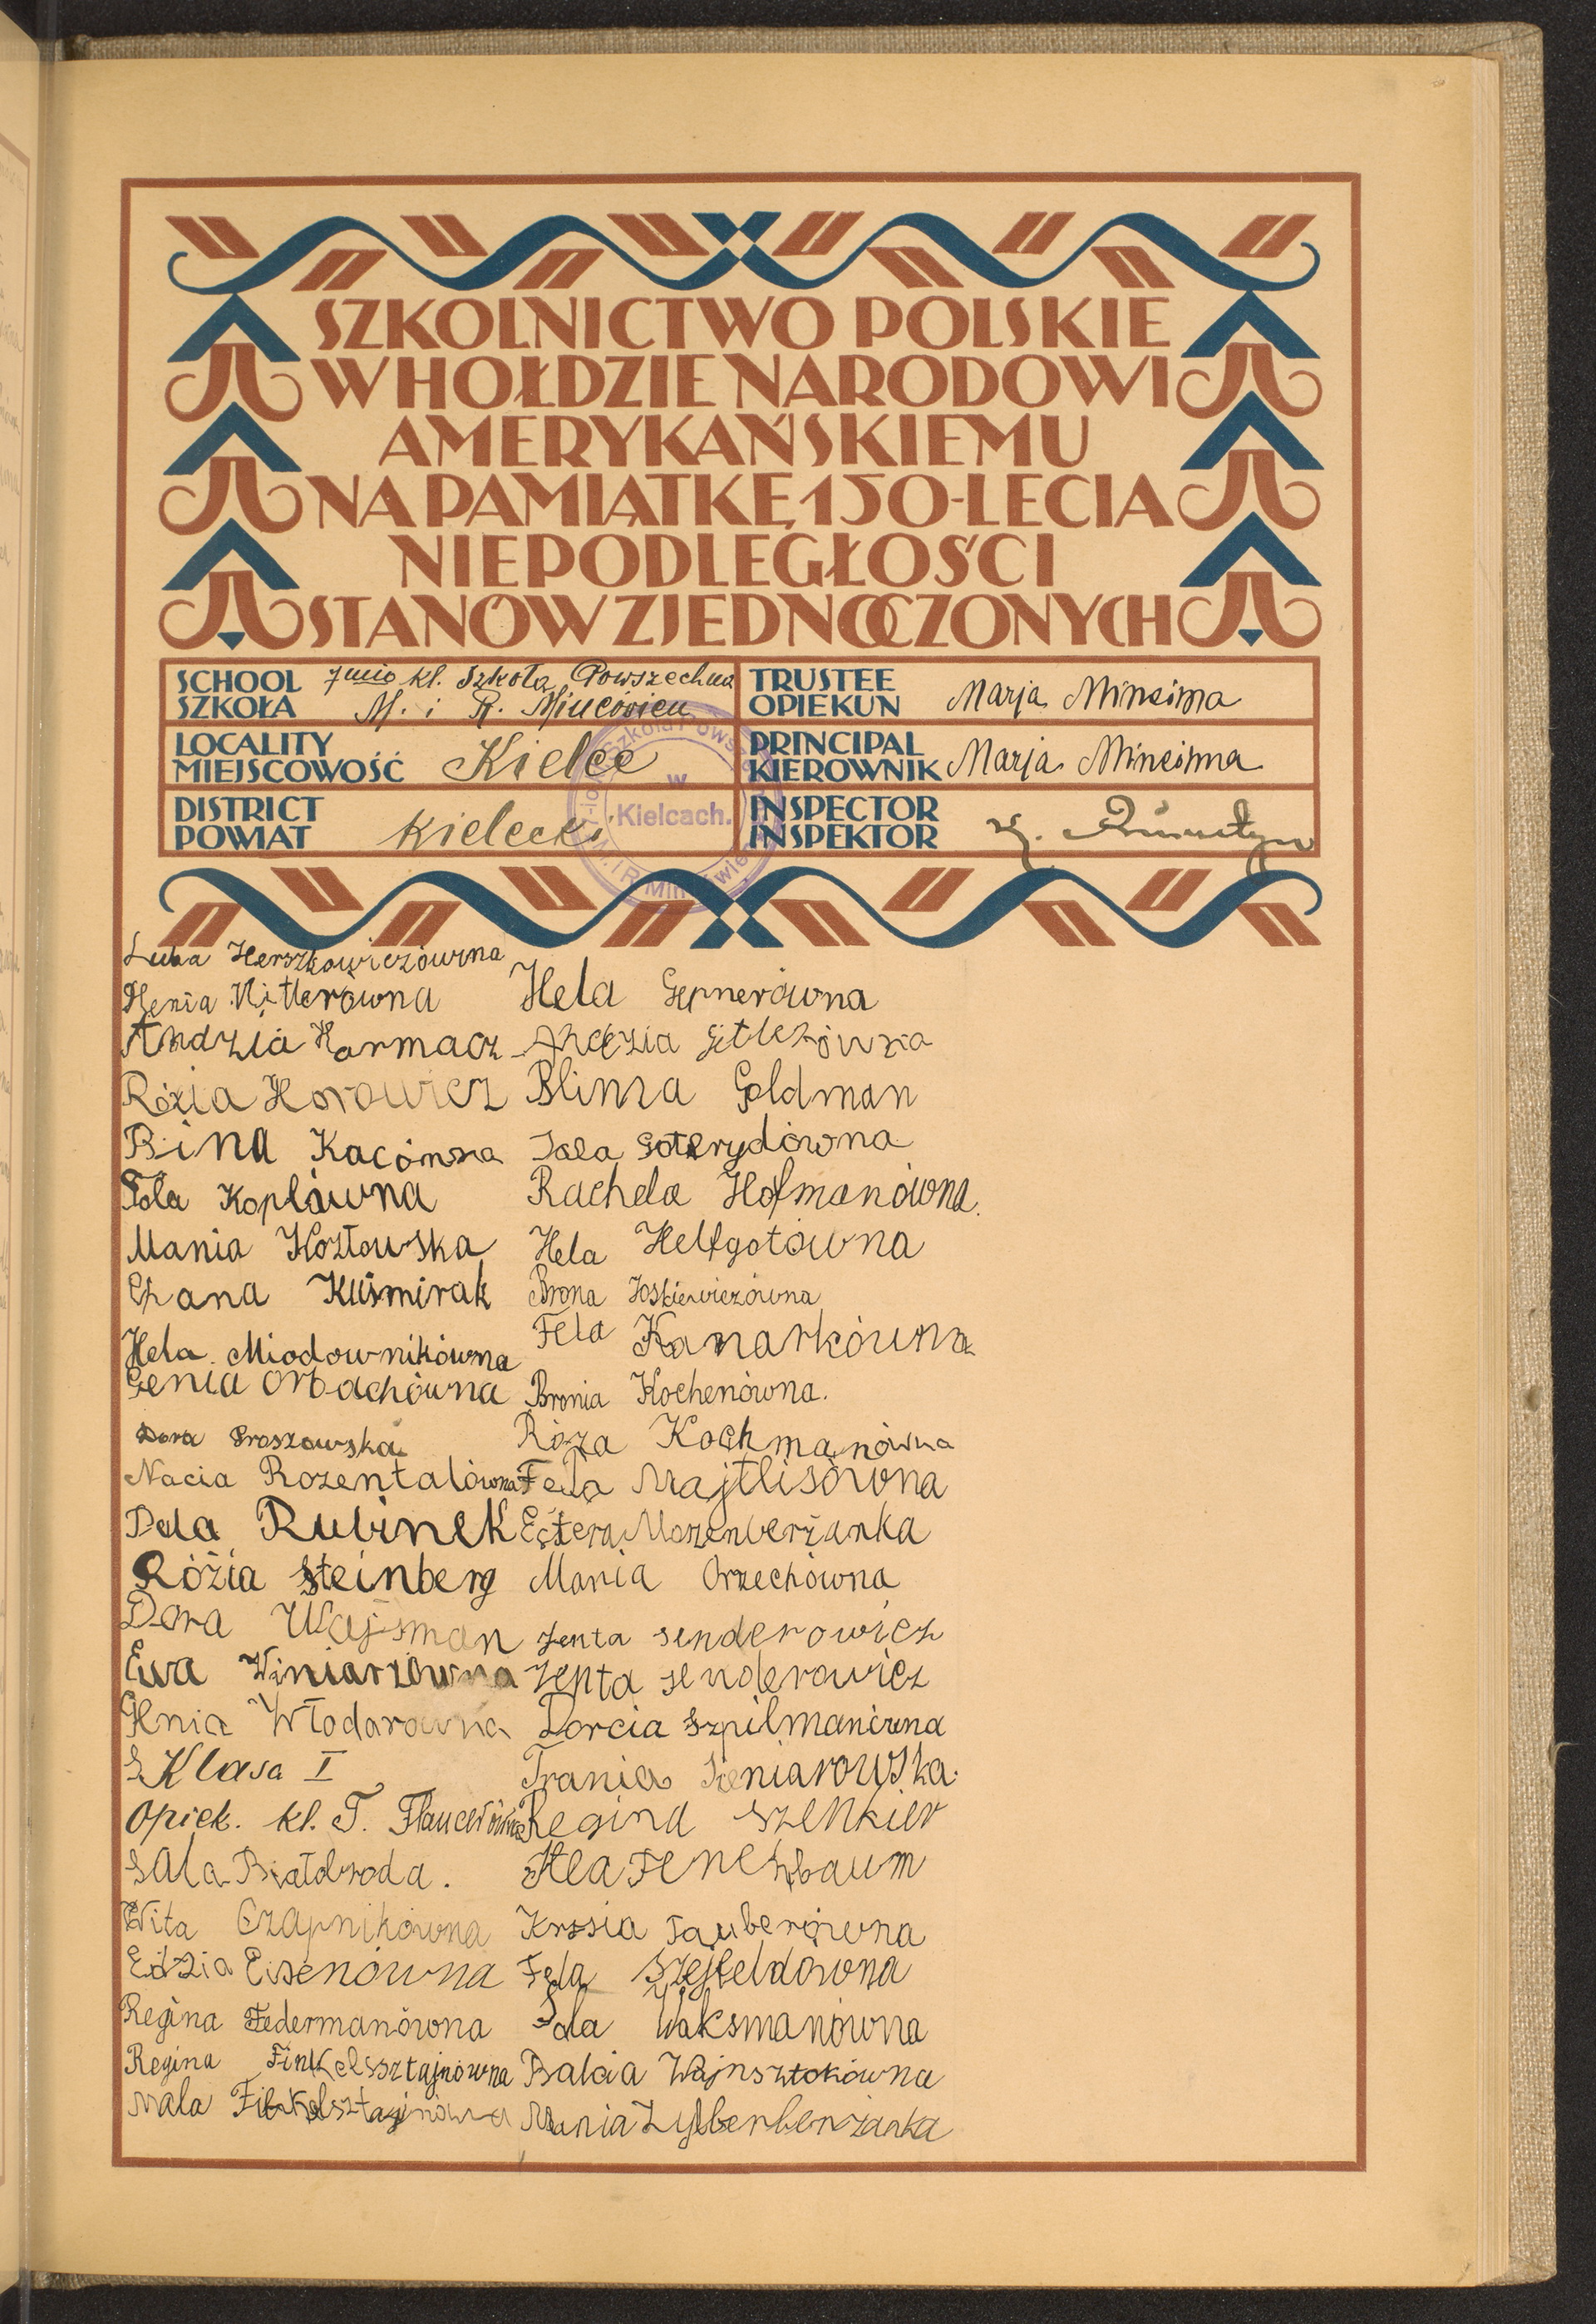 SZKOLNICTWO POLSKIE
W HOŁDZIE NARODOWI
AMERYKAŃSKIEMU
NA PAMIĄTKĘ 150-LECIA
NIEPODLEGŁOŚCI
STANÓW ZJEDNOCZONYCH
SCHOOL 7mio kl. Szkoła Powszechna
SZKOŁA M. i R.
TRUSTEE
OPIEKUN Marja
LOCALITY
MIEJSCOWOŚĆ Kielce
PRINCIPAL
KIEROWNIK Marja
DISTRICT
POWIAT Kielecki
INSPECTOR
INSPEKTOR
w
Kielcach.
Luba Herszkowiczówna
Henia Hitlerówna
Andzia Harmacz
Rózia Horowicz
Bina Kacówna
Pola Koplówna
Mania Kozłowska
Chana Kuśmirak
Hela Miodownikówna
Genia Orbachówna
Dora Proszowska
Nacia Rozentalówna
Dela Rubinek
Róźia Steinberg
Dora Wajsman
Ewa Winiarzówna
Włodarówna
Klasa I
Opiek. kl. T.
Sala Białobroda.
Wita Czapnikówna
Edzia Eisenówna
Regina Federmanówna
Regina Finkelssztajnówna
Mala Finkelsztajnówna
Hela Gepnerówna
Andzia Gitlerówna
Blima Goldman
Goterydówna
Rachela Hofmanówna.
Hela Helfgotówna
Brona Joskiewiczówna
Fela Kanarkówna
Bronia Kochenówna.
Róza Kochmanówna
Fela Majtlisówna
Estera Mozenberżanka
Mania Orzechówna
Jenta Senderowicz
Jenta Senderowicz
Dorcia Szpilmanówna
Frania Sieniarowska.
Regina Szenkier
Tenenbaum
Krysia Tauberówna
Fela Szejfeldówna
Waksmanówna
Balcia Wajnsztokówna
Mania Zylberberżanka